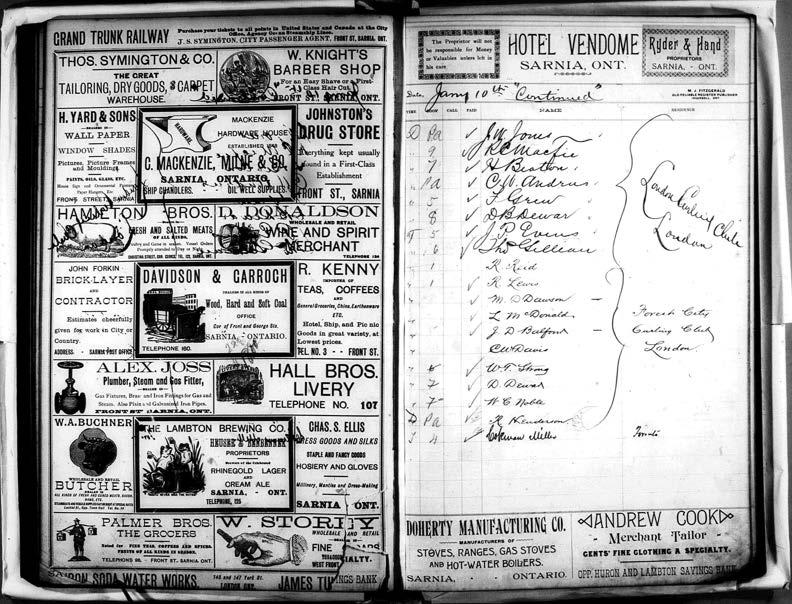 GRAND TRUNK RAILWAY
Purchase your tickets to all points in United States and Canada at the City
Office, Agency Ocean Steamship Lines.
J. S. SYMINGTON, CITY PASSENGER AGENT, FRONT ST, SARNIA, ONT.
THOS. SYMINGTON & CO.
THE GREAT
TAILORING, DRY GOODS, & CARPET
WAREHOUSE.
W. KNIGHT'S
BARBER SHOP
For an Easy Shave or a First-
Class Hair Cut.
FRONT ST. SARNIA ONT.
H. YARD & SONS
DEALERS IN
WALL PAPER
WINDOW SHADES
Pictures, Picture Frames
and Moulding.
PAINTS, OILS, GLASS, ETC.
House Sign and Ornamental Painting
Paper Hanging, Etc.
FRONT STREET SARNIA
HARDWARE.
MACKENZIE
HARDWARE HOUSE
ESTABLISHED
C. MACKENZIE, MILNE & CO.
SARNIA, ONTARIO.
SHIP CHANDLERS. OIL WELL SUPPLIES.
JOHNSTON'S
DRUG STORE
Everything kept usually
found in a First-Class
Establishment
FRONT ST., SARNIA
HAMILTON BROS.
FRESH AND SALTED MEATS
OF ALL KINDS,
D. DONALDSON
WHOLESALE AND RETAIL
WINE AND SPIRIT
MERCHANT
TELEPHONE
JOHN FORKIN
BRICK-LAYER
AND
CONTRACTOR
Estimates cheerfully
given for work in City or
Country.
ADDRESS - SARNIA POST OFFICE
DAVIDSON & GARROCH
DEALERS IN ALL KINDS OF
Wood, Hard and Soft Coal
OFFICE
Cor of Front and George Sts.
SARNIA, ONTARIO.
TELEPHONE 160.
R. KENNY
IMPORTER OF
TEAS, COFFEES
AND
General Groceries, China, Earthenware
ETC.
Hotel, Ship, and Pic nic
Goods in great variety, at
Lowest prices.
TEL. NO. 3 - - FRONT ST.
ALEX. JOSS
Plumber, Steam and Gas Fitter,
DEALER IN
Gas Fixtures, Brass and Iron Fittings for Gas and
Steam. Also Plain and Galvanized Iron Pipes.
FRONT ST SARNIA, ONT.
HALL BROS.
LIVERY
TELEPHONE NO. 107
W.A. BUCHNER
WHOLESALE AND RETAIL
BUTCHER
DEALER IN
THE LAMBTON BREWING CO.
PROPRIETORS
Brewers of the Celebrated
RHINEGOLD LAGER
AND
CREAM ALE
SARNIA, - ONT.
TELEPHONE, 125
CHAS. S. ELLIS
DRESS GOODS AND SILKS
STAPLE AND FANCY GOODS
HOSIERY AND GLOVES
Millinery, Mantles and Dress-Making
SARNIA ONT.
PALMER BROS.
THE GROCERS
Noted for FINE TEAS, COFFEES AND SPICES,
FRUITS OF ALL KINDS IN SEASON.
TELEPHONE No. 98. FRONT ST. SARNIA ONT.
W. STOREY
WHOLESALE AND RETAIL
FINE
SODA WATER WORKS
145 and 147 York St.
LONDON ONT.
The Proprietor will not
be responsible for Money
or Valuables unless left in
his care
HOTEL VENDOME
SARNIA, ONT.
Ryder & Hand
PROPRIETORS
SARNIA, - ONT.
M. J. FITZGERALD
OLD RELIABLE REGISTER PUBLISHER
INGERSOLL, ONT.
Date, Jany 10th "Continued"
TIME ROOM CALL PAID NAME RESIDENCE
D Pa J. W. Jones
9 R C Mactie
7 H Beaton
Pa C. W. Andrus
5 F Grew
8 D. B. Dewar
T 5 J. P. Evans
6 Thos Gillean
London Curling Club
London
1 R Reid
1 R Lewis
M. D Dawson
L McDonald
J D Balfour
C W Davis
Forest City
Curling Club
London.
W. T. Strong
7 D. Dewar
7 W C Noble
D Pa R Henderson
T 4 Coleman Millis Toronto
DOHERTY MANUFACTURING CO.
MANUFACTURERS OF
STOVES, RANGES, GAS STOVES
AND HOT-WATER BOILERS.
SARNIA, - ONTARIO.
ANDREW COOK
- Merchant Tailor -
GENTS' FINE CLOTHING A SPECIALTY.
OPP. HURON AND LAMBTON SAVINGS BANK